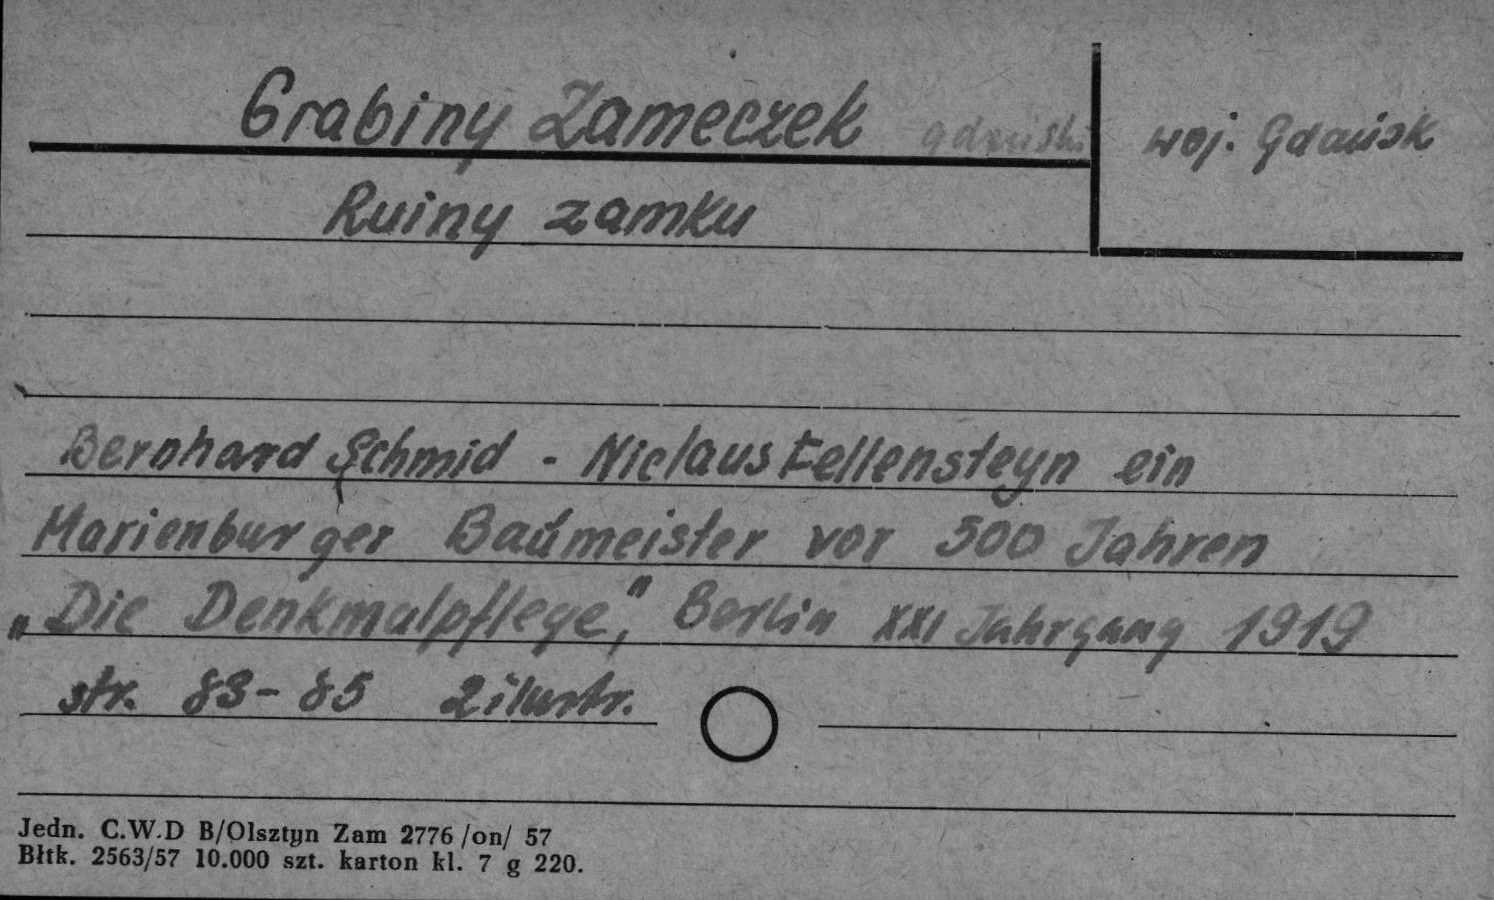 Grabiny Zameczek gdański
woj. Gdańsk
Ruiny zamku
Bernhard Schmid - Niclaus Fellensteyn ein
Marienburger Baumeister vor 500 Jahren
„Die Denkmalpflege," Berlin XXI Jahrgang 1919
str. 83-85 2 ilustr.
Jedn. C.W.D B/Olsztyn Zam 2776 /on/ 57
Błtk. 2563/57 10.000 szt. karton kl. 7 g 220.